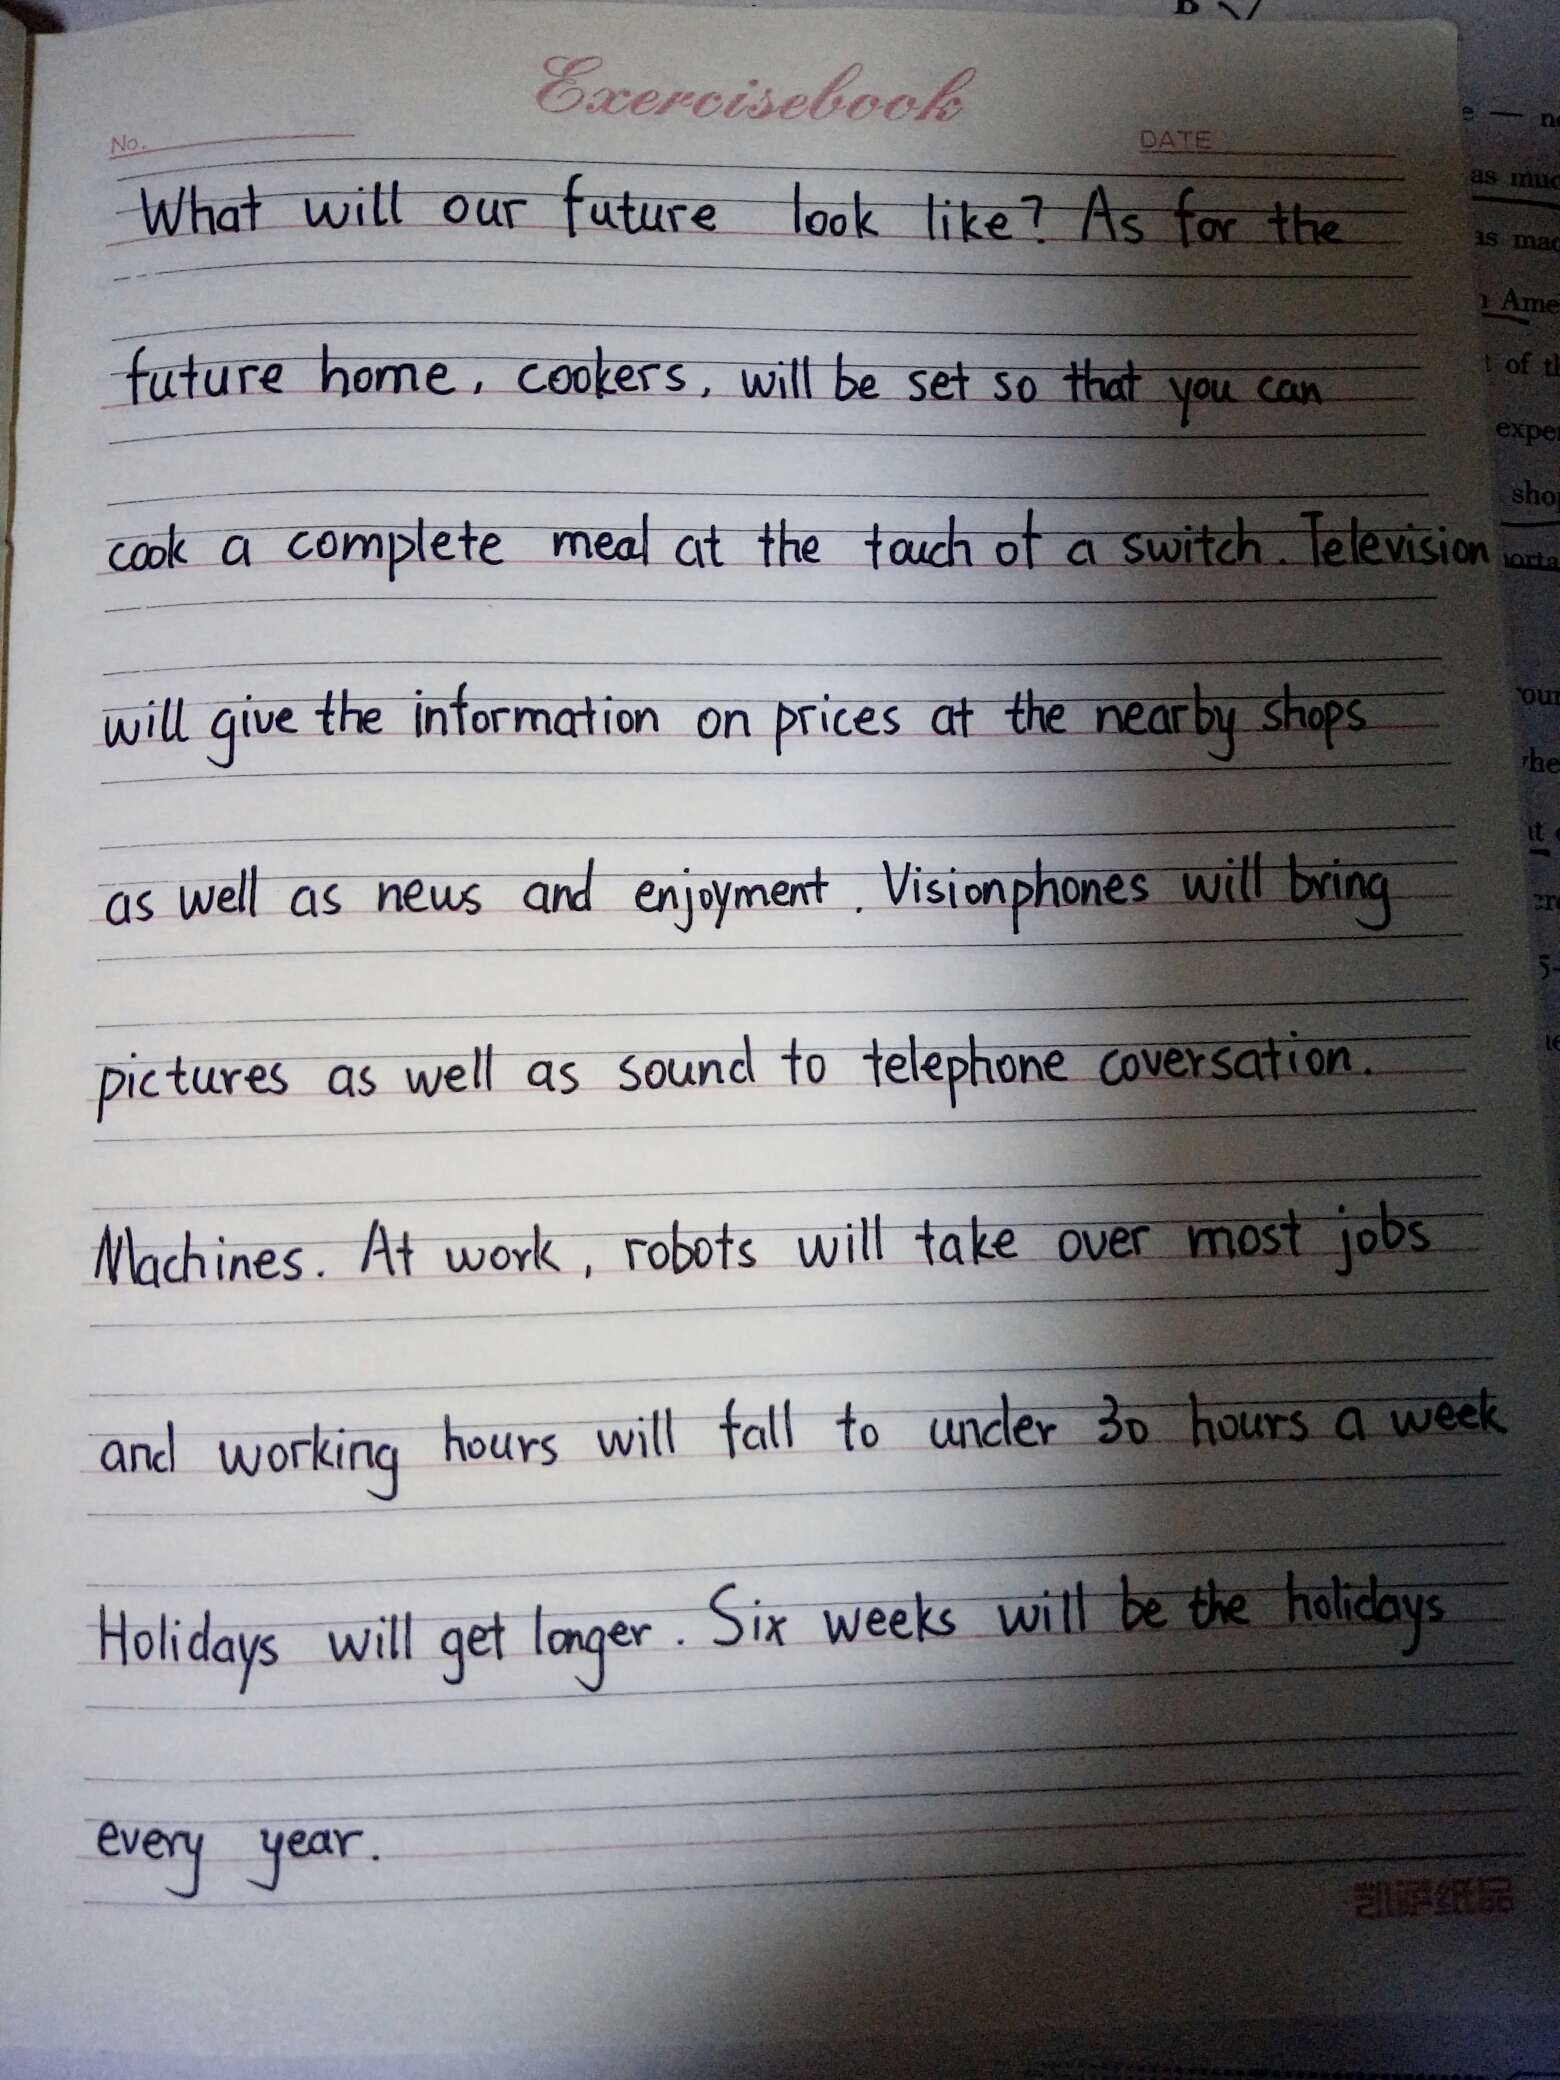 Exercisebook
No.
DATE
What will our future look like? As for the
future home, cookers, will be set so that you can
cook a complete meal at the touch of a switch. Television
will give the information on prices at the nearby shops
as well as news and enjoyment. Visionphones will bring
pictures as well as sound to telephone coversation.
Machines. At work, robots will take over most jobs
and working hours will fall to under 30 hours a week
Holidays will get longer. Six weeks will be the holidays
every year.
纸品
as
as
of